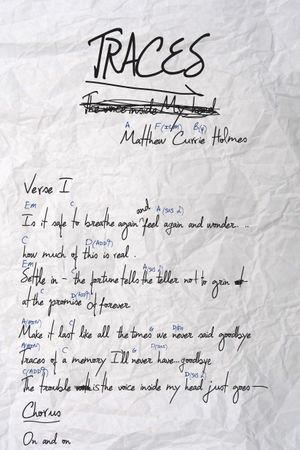 TRACES
The voice inside My head
A F(#m) B(4)
Matthew Currie Holmes
Verse I
and
Em C A(sus 2)
Is it safe to breathe again feel again and wonder. . .
C D(ADD9)
how much of this is real .
Em A(sus 2)
Settle in - the fortune tells the teller not to grin
D(ADD9)
at the promise of forever
G
Make it last like all the times we never said goodbye
C G D(sus)
Traces of a memory I'll never have... goodbye
C(ADD9) G D(sus 2)
The trouble is the voice inside my head just goes—
Chorus
On and on